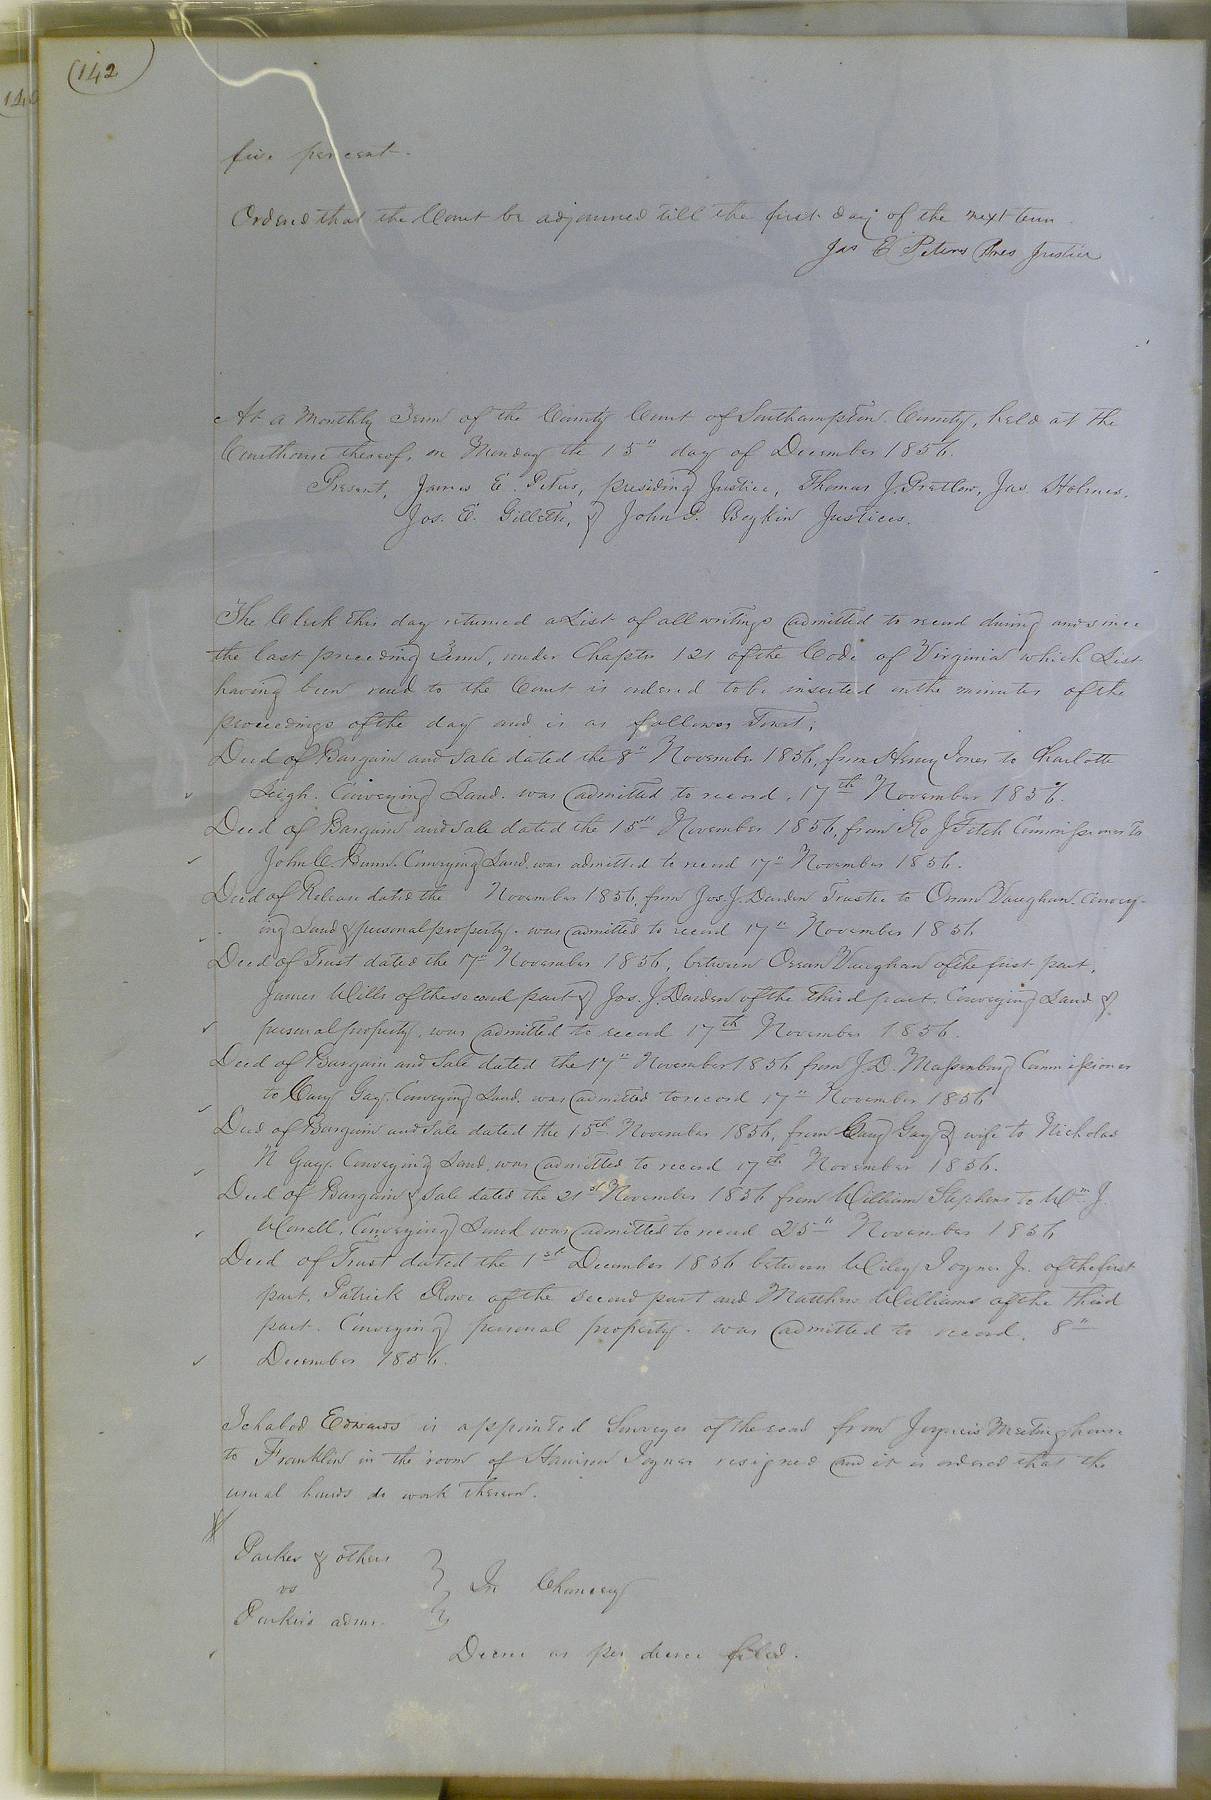 (142)
140
five per cent.
Ordered that the Court be adjourned till the first day of the next term.
Jas E Peters Pres Justice
At a Monthly Term of the County Court of Southampton County, held at the
Courthouse thereof, on Monday the 15" day of December 1856.
Present, James E. Peters, presiding Justice, Thomas J. Pretlow, Jas. Holmes,
Jos. E. Gillette, & John G. Boykin Justices.
The Clerk this day returned a List of all writings admitted to record during and since
the last preceeding Term, under Chapter 121 of the Code of Virginia which List
having been read to the Court is ordered to be inserted in the minutes of the
proceedings of the day and is as follows Towit;
Deed of Bargain and Sale dated the 8" November 1856, from Henry Jones to Charlotte
Leigh. Conveying Land. was admitted to record. 17th November 1856.
Deed of Bargain and Sale dated the 15" November 1856, from Ro J Fitch Commissioner to
John C. Bunn. Conveying Land. was admitted to record 17" November 1856.
Deed of Release dated the November 1856, from Jos. J. Darden Trustee to Orran Vaughan. Convey-
ing Land & personal property. was admitted to record 17" November 1856
Deed of Trust dated the 17" November 1856, between Orran Vaughan of the first part,
James Wills of the second part & Jos. J. Darden of the third part. Conveying Land &
personal property, was admitted to record 17th November 1856.
Deed of Bargain and Sale dated the 17" November 1856 from J. D. Massenburg Commissioner
to Cary Gay. Conveying Land. was admitted to record 17" November 1856
Deed of Bargain and Sale dated the 15th November 1856, from Cary Gay & wife to Nicholas
N Gay. Conveying Land, was admitted to record 17th November 1856.
Deed of Bargain & Sale dated the 21st November 1856 from William Stephens to Wm J.
Worrell, Conveying Land was admitted to record 25" November 1856
Deed of Trust dated the 1st December 1856 between Wiley Joyner Jr. of the first
part, Patrick Rowe of the second part and Matthew Williams of the third
part. Conveying personal property. was admitted to record. 8"
December 1856.
Ichabod Edwards is appointed Surveyor of the road from Joyner's Meeting house
to Franklin in the room of Harrison Joyner resigned and it is ordered that the
usual hands do work thereon.
Parker & others
vs
In Chancery
Parker's admr.
Decree as per decree filed.